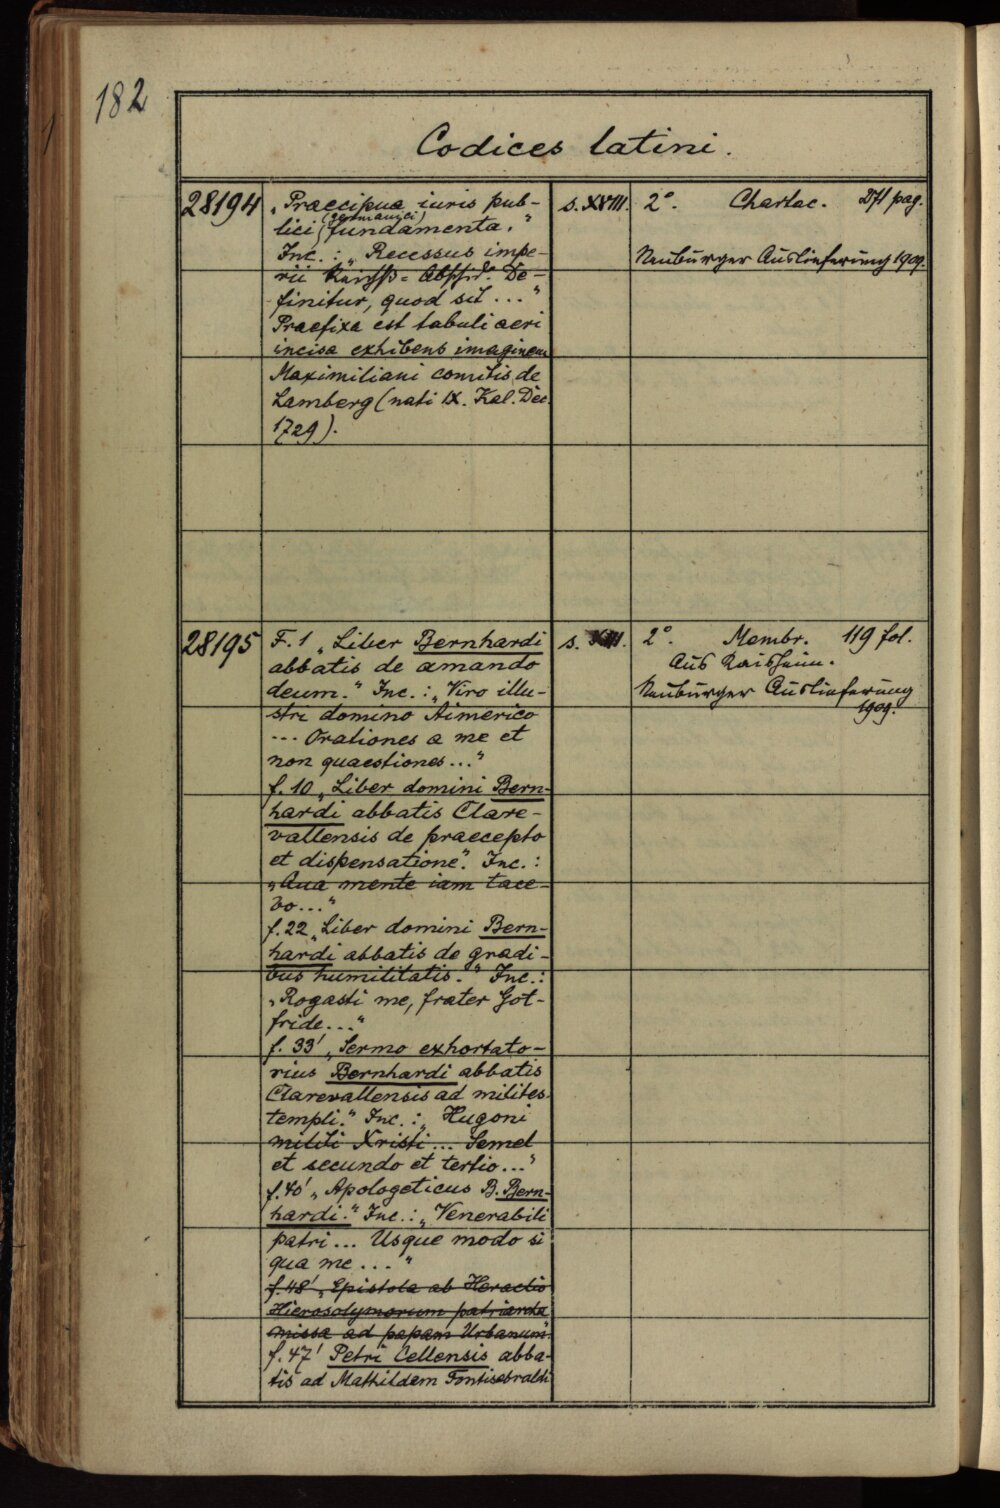 182
Codices latini.
28194
„Praecipua iuris pub-
lici (germanici) fundamenta.“
Inc.: „Recessus impe-
rii Reichß-Abschid. De-
finitur, quod sit ...“
Praefixa est tabuli aeri
incisa exhibens imaginem
Maximiliani comitis de
Lamberg (nati IX. Kal. Dec.
1729).
s. XVIII.
2°. Chartac. 271 pag.
Neuburger Auslieferung 1909.
28195
F. 1 „Liber Bernhardi
abbatis de amando
deum.“ Inc.: „Viro illu-
stri domino Aimerico
... Orationes a me et
non quaestiones...“
f. 10 „Liber domini Bern-
hardi abbatis Clare-
vallensis de praecepto
et dispensatione“. Inc.:
„Qua mente iam tace-
bo...“
f. 22 „Liber domini Bern-
hardi abbatis de gradi-
bus humilitatis.“ Inc.:
„Rogasti me, frater Got-
fride...“
f. 33' „Sermo exhortato-
rius Bernhardi abbatis
Clarevallensis ad milites
templi.“ Inc.: „Hugoni
militi Xristi... Semel
et secundo et tertio...“
f. 40' „Apologeticus B. Bern-
hardi.“ Inc.: „Venerabili
patri... Usque modo si
qua me...“
f. 48' „Epistola ab Heraclio
Hierosolymorum patriarcha
missa ad papam Urbanum“
f. 47' Petri Cellensis abba-
tis ad Mathildam Fontisebraldi
s. XIII.
2°. Membr. 119 fol.
Aus Kaisheim.
Neuburger Auslieferung
1909.